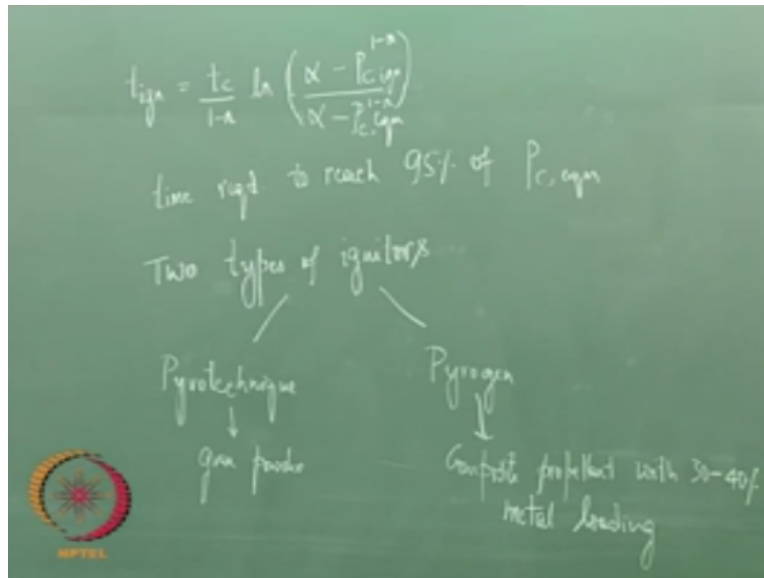 t_ign = t_c / 1-n ln ( α - P_c,ign^1-n / α - P_c,eqm^1-n )
time reqd. to reach 95% of P_c,eqm
Two types of ignitors
Pyrotechnique
Pyrogen
gun powder
Composite propellant with 30-40%
metal loading
NPTEL